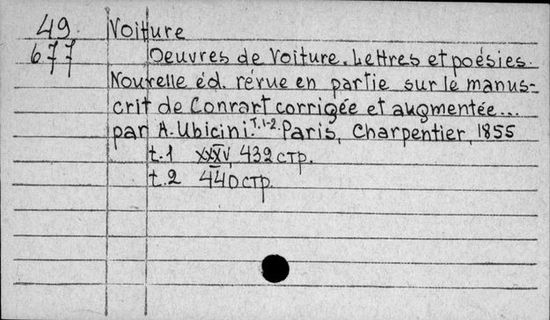 49 Voiture
677 Oeuvres de Voiture. Lettres et poésies.
Nouvelle éd. révue en partie sur le manus-
crit de Conrart corrigée et augmentée...
par A. Ubicini T. 1-2. Paris, Charpentier, 1855
t. 1 XXXV, 432 стр.
t. 2 440 стр.